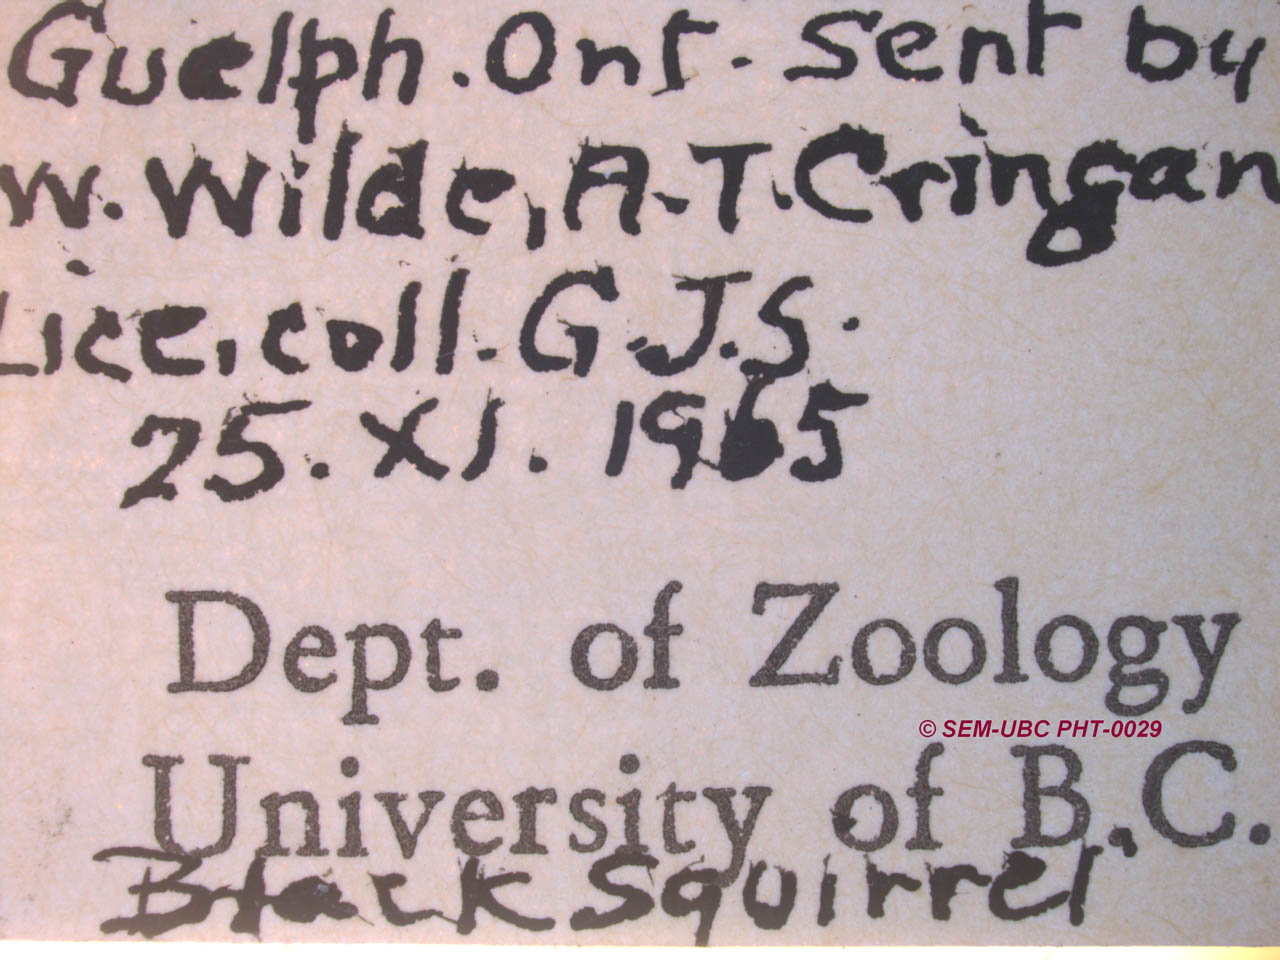 Guelph. Ont. Sent by
W. Wilde, A.T. Cringan
Lice, coll. G.J.S.
25. XI. 1965
Dept. of Zoology
© SEM-UBC PHT-0029
University of B.C.
Black Squirrel